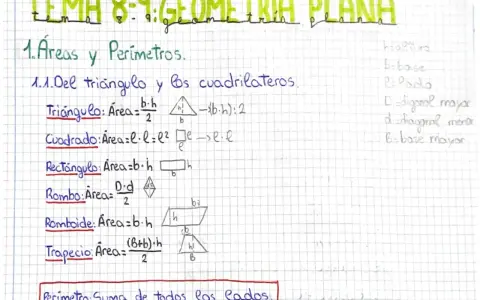 TEMA 8-9: GEOMETRÍA PLANA
1. Áreas y Perímetros.
h: altura
b: base
l: lado
D: diagonal mayor
d: diagonal menor
B: base mayor
1.1. Del triángulo y los cuadrilateros.
Triángulo: Área = b·h/2 h b → (b·h):2
Cuadrado: Área = l·l = l² l l → l·l
Rectángulo: Área = b·h h b
Rombo: Área = D·d/2
Romboide: Área = b·h h b
Trapecio: Área = (B+b)·h/2 b h B
Perímetro: Suma de todos los lados.